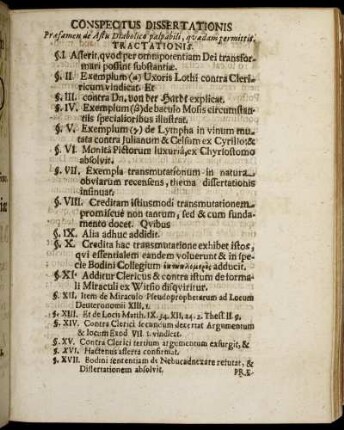 CONSPECTUS DISSERTATIONIS
Præfamen de Astu Diabolico palpabili, quædam permittit.
TRACTATIONIS.
§. I Asserit, quod per omnipotentiam Dei transfor-
mari possint substantiæ.
§. II. Exemplum (α) Uxoris Lothi contra Cleri-
cum vindicat. Et
§. III. contra Dn. von der Hardt explicat.
§. IV. Exemplum (β) de baculo Mosis circumstan-
tiis specialioribus illustrat.
§. V. Exemplum (γ) de Lympha in vinum mu-
tata contra Julianum & Celsum ex Cyrillo; &
§. VI Monita Pictorum luxuriæ, ex Chrysostomo
absolvit.
§. VII. Exempla transmutationum in natura
obviarum recensens, thema dissertationis
insinuat.
§. VIII. Creditam istiusmodi transmutationem,
promiscuè non tantum, sed & cum funda-
mento docet. Qvibus
§. IX. Alia adhuc addidit.
§. X. Credita hac transmutatione exhibet istos,
qvi essentialem eandem voluerunt & in spe-
cie Bodini Collegium adducit.
§. XI. Addirur Clericus & contra istum de forma-
li Miraculi ex Witsio disqviritur.
§. XII. Item de Miraculo Pseudoprophetarum ad Locum
Deuteronomii XIII, 1.
§. XIII. Et de Locis Matth. IX. 34. XII, 24. 2. Thess. II. 9.
§. XIV. Contra Clerici secundum decertat Argumentum
& locum Exod VII 1. vindicat.
§. XV. Contra Clerici tertium argumentum exsurgit, &
§. XVI. Hactenus asserta confirmat.
§. XVII. Bodini sententiam de Nebucadnezare refutat, &
Dissertationem absolvit.
PR.Æ-